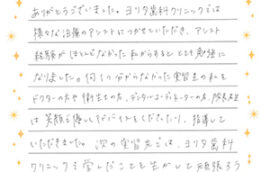 ありがとうございました。ヨリタ歯科クリニックでは
様々な治療のアシストにつかせていただき、アシスト
経験がほとんどなかった私からすると とても勉強に
なりました。何も分からなかった実習生の私を
ドクターの方や衛生士の方、デンタルコーディネーターの方、院長先生
は笑顔で優しくアドバイスをくださったり、指導して
いただきました。次の実習先では、ヨリタ歯科
クリニックで学んだことを生かして頑張ろう